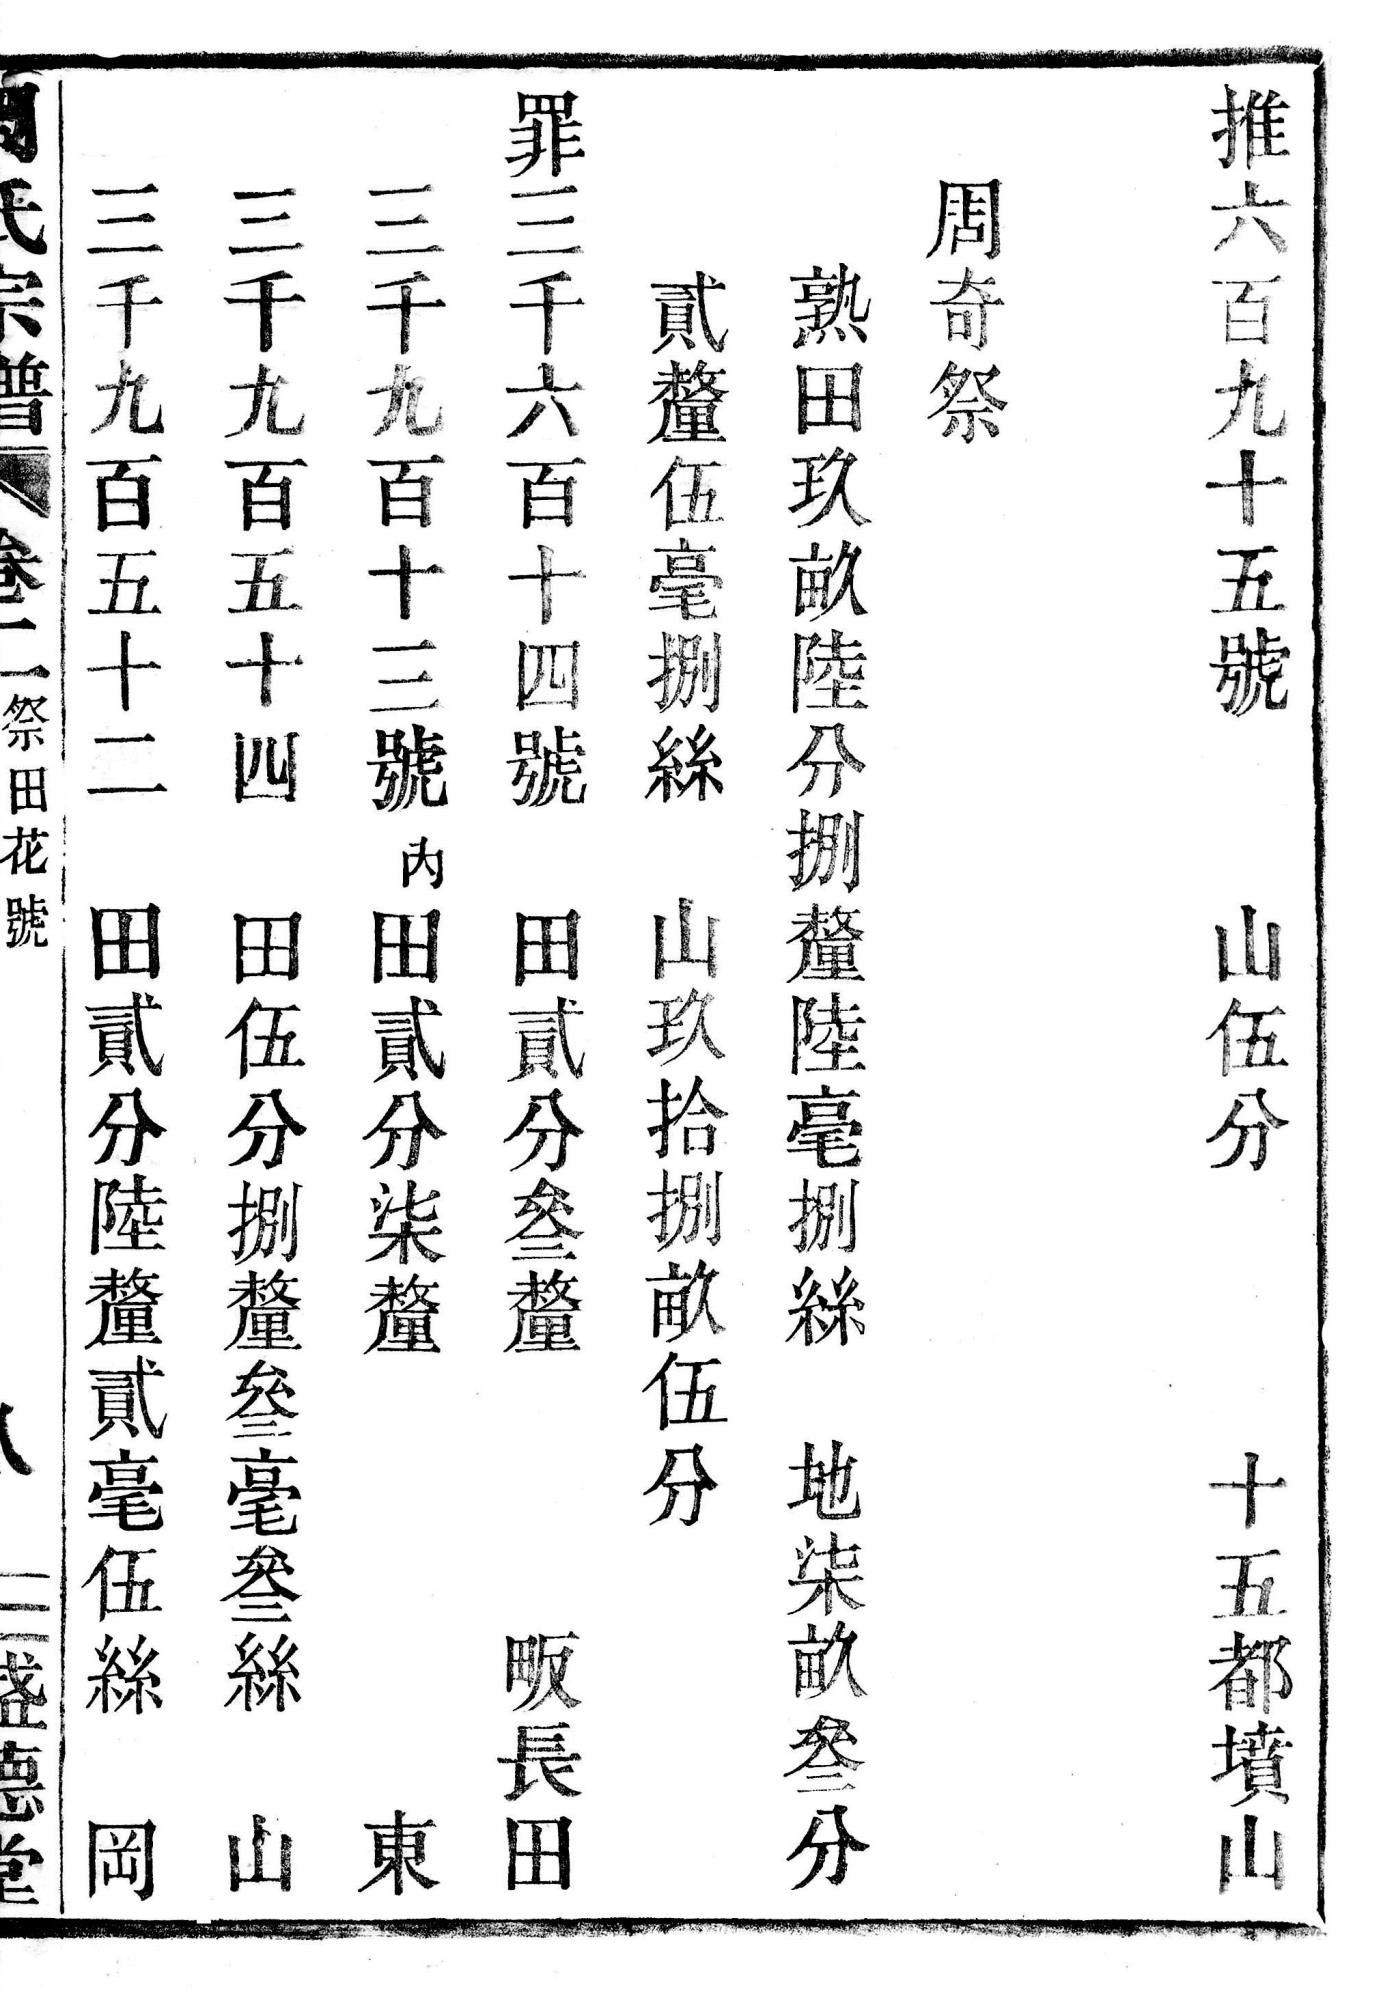 推六百九十五號 山伍分 十五都墳山
周奇祭
熟田玖畝陸分捌釐陸毫捌絲 地柒畝叁分
貳釐伍毫捌絲 山玖拾捌畝伍分
罪三千六百十四號 田貳分叁釐 畈長田
三千九百十三號內 田貳分柒釐 東
三千九百五十四 田伍分捌釐叁毫叁絲 山
三千九百五十二 田貳分陸釐貳毫伍絲 岡
周氏宗譜 卷二 祭田花號 三盛德堂